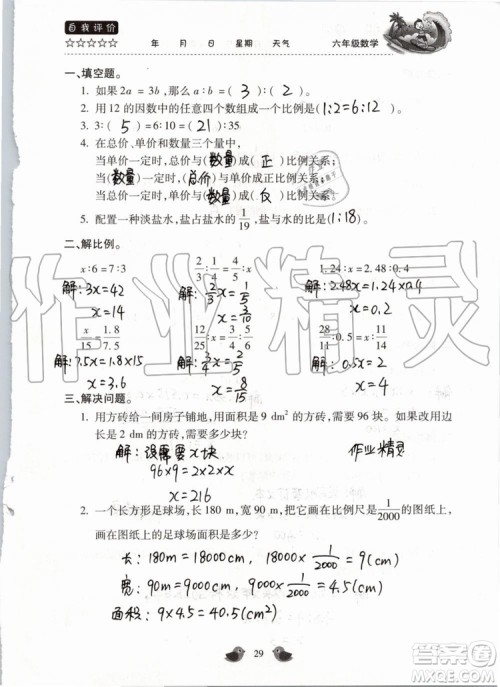 自我评价
☆☆☆☆☆ 年 月 日 星期 天气 六年级数学
一、填空题。
1. 如果 2a = 3b,那么 a∶b = ( 3 )∶( 2 )
2. 用 12 的因数中的任意四个数组成一个比例是( 1:2=6:12 )
3. 3∶( 5 ) = 6∶10 = ( 21 )∶35
4. 在总价、单价和数量三个量中,
当单价一定时,总价与(数量)成( 正 )比例关系;
当(数量)一定时,(总价)与单价成正比例关系;
当总价一定时,单价与(数量)成( 反 )比例关系。
5. 配置一种淡盐水,盐占盐水的 1/19 ,盐与水的比是( 1:18 )。
二、解比例。
x∶6 = 7∶3
解: 3x = 42
x = 14
1.24∶x = 2.48∶0.4
解: 2.48x = 1.24×0.4
x = 0.2
x/15 = 1.8/7.5
解: 7.5x = 1.8×15
x = 3.6
x = 8/15
解: 0.5x = 2
x = 4
三、解决问题。
1. 用方砖给一间房子铺地,用面积是 9 dm² 的方砖,需要 96 块。如果改用边
长是 2 dm 的方砖,需要多少块?
解:设需要x块 作业精灵
96×9 = 2×2×x
x = 216
2. 一个长方形足球场,长 180 m,宽 90 m,把它画在比例尺是 1/2000 的图纸上,
画在图纸上的足球场面积是多少?
长: 180m = 18000cm 18000× 1/2000 = 9(cm)
宽: 90m = 9000cm 9000× 1/2000 = 4.5(cm)
面积: 9×4.5 = 40.5(cm²)
29
作业精灵
作业帮
MXQE.COM